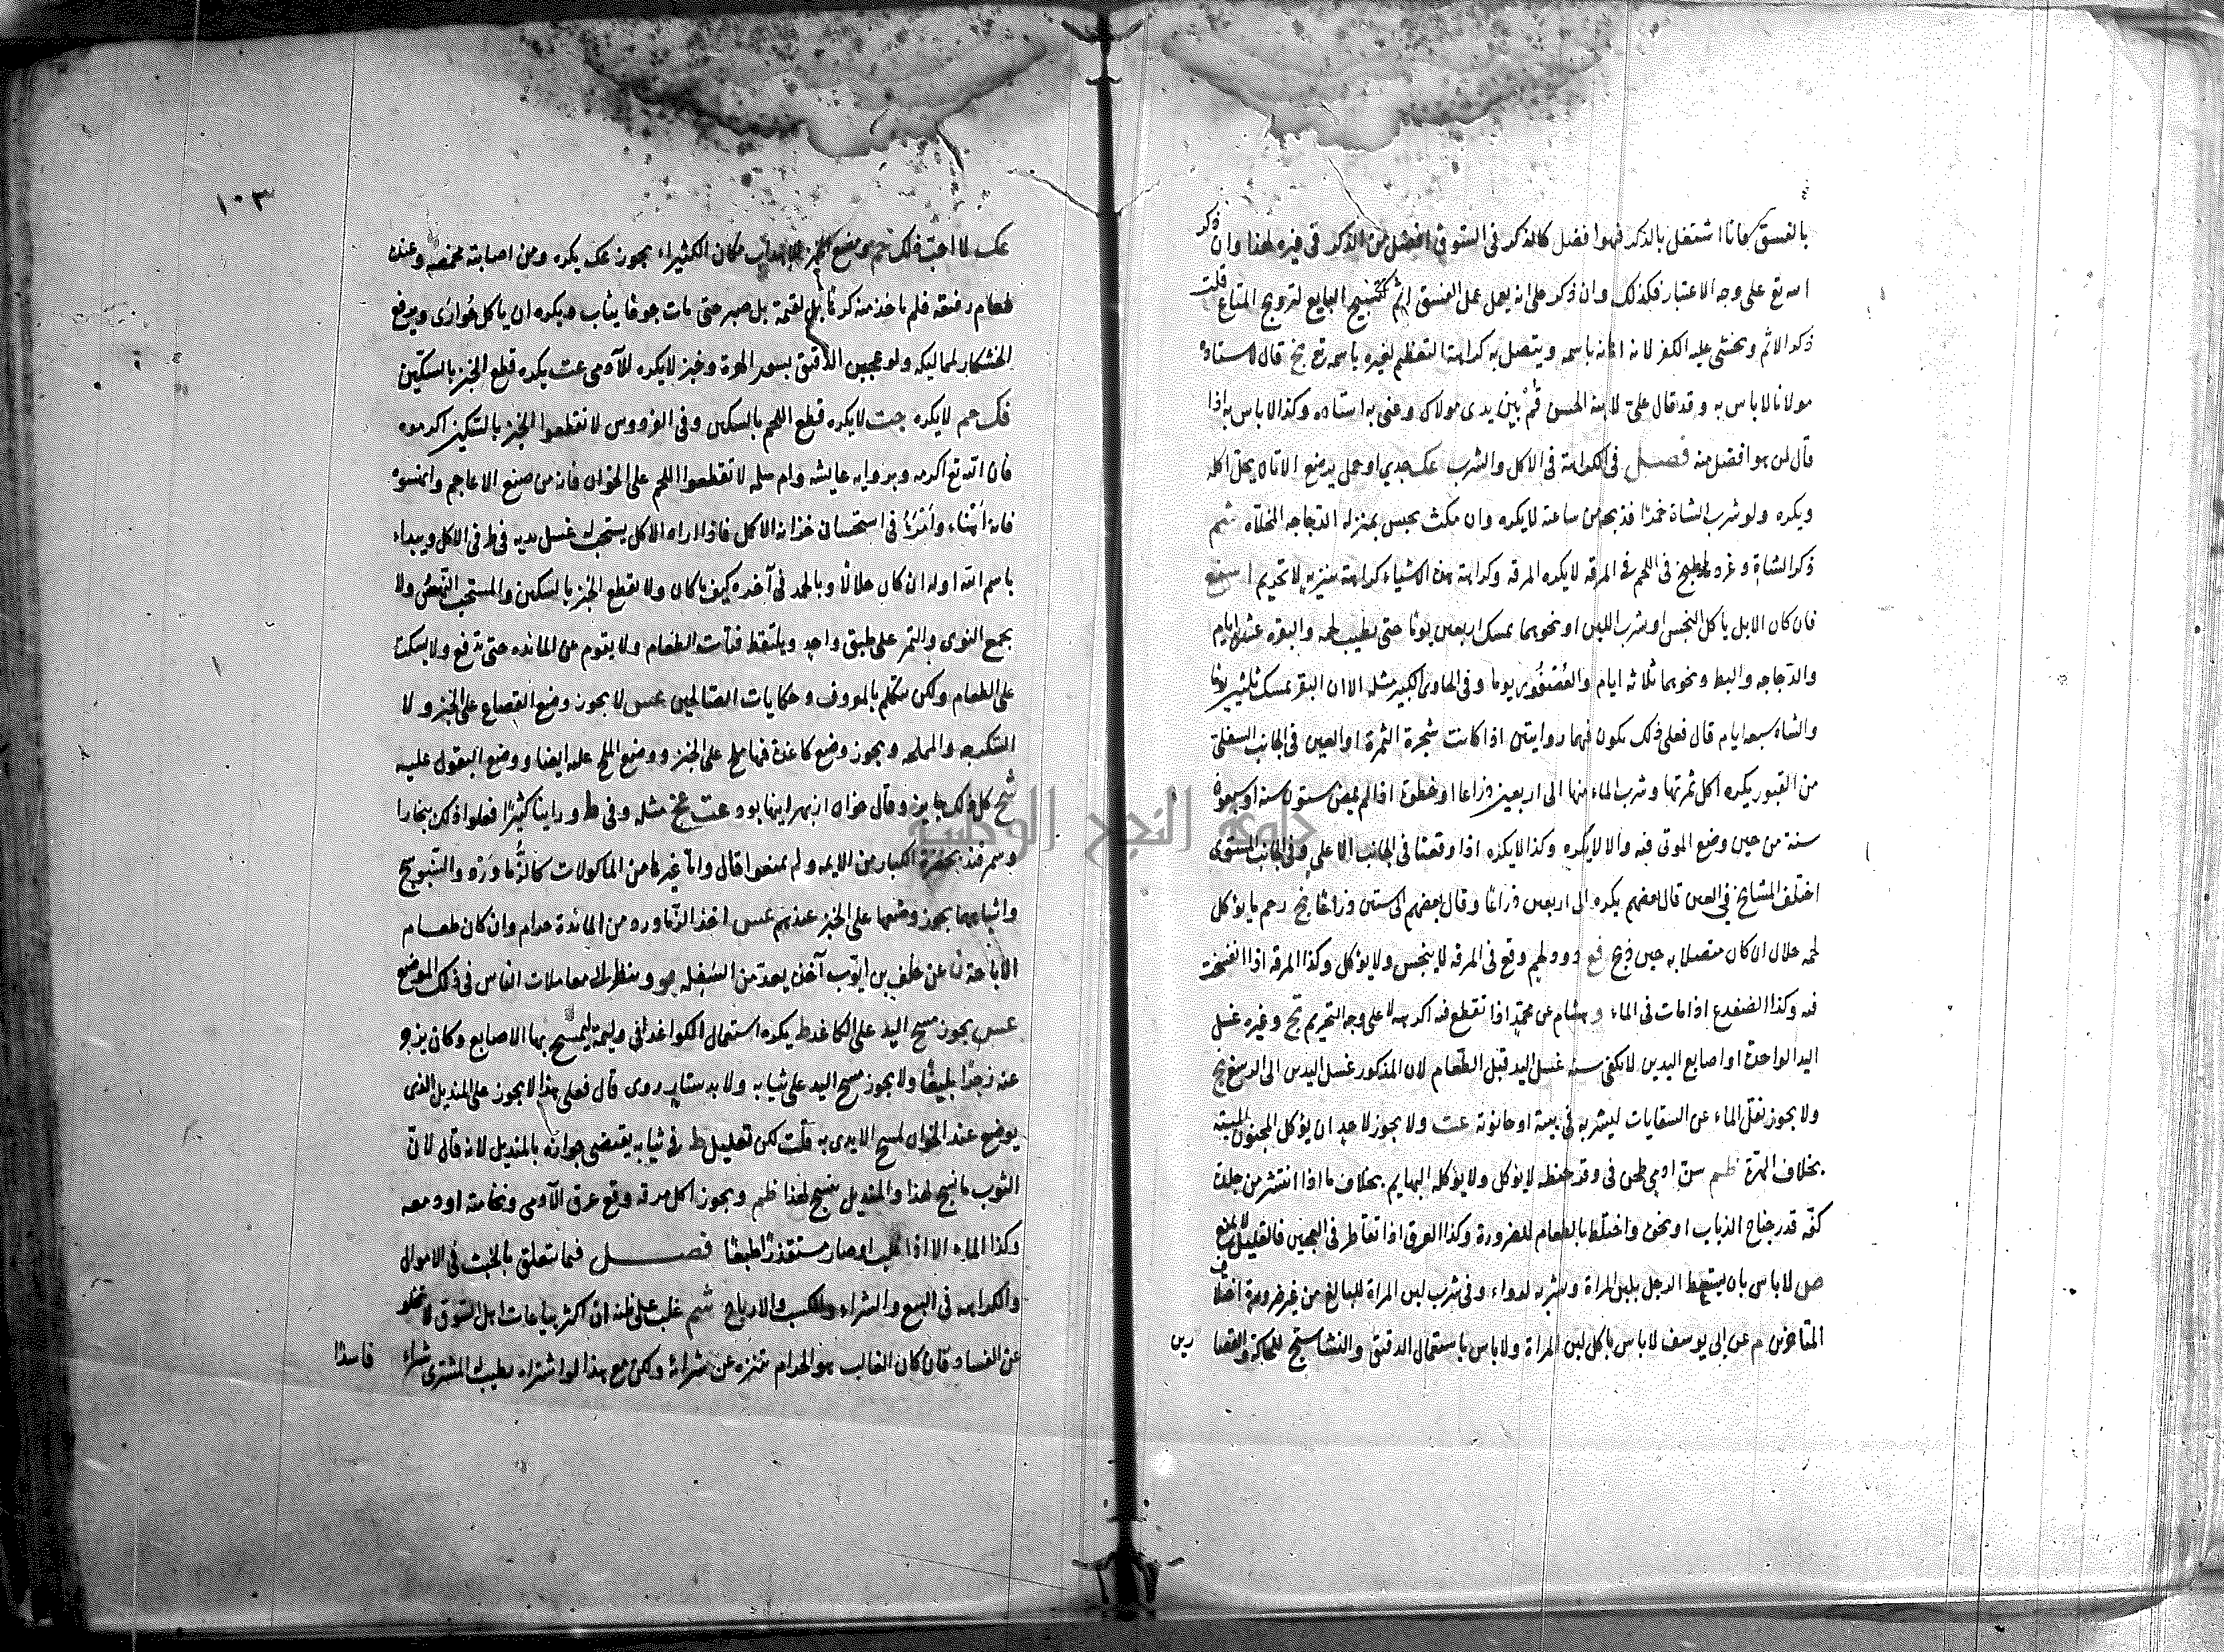 بالفسق فانا اشتغل بالذكر فهو افضل كالذكر في السوق افضل من الذكر في غيره لهذا وان ذكر
اسه تع على وجه الاعتبار فكذلك وان ذكر على انه يعمل عمل الفسق اثم كتسبيح البايع لترويج المتاع قلت
ذكر الاثم ويخشى عليه الكفر لانه اهانة باسمه ويتصل به كراهة التعظيم لغيره باسمه تع نج قال لاستاذه
مولانا لا باس به وقد قال علي لابنه الحسن قم بين يدى مولاك وعنى به استاذه وكذا لا باس به اذا
قال لمن هو افضل منه فصل في الكراهة في الاكل والشرب عك جدي او حمل يرضع الاتان يحل اكله
ويكره ولو شرب الشاة خمرا فذبحها من ساعته لا يكره وان مكث يحبس بمنزلة الدجاجه المخلاة شم
ذكر الشاة وغرد لمطبخ في اللحم في المرقه لا يكره المرقه وكراهة هذه الاشياء كراهة تنزيه لا تحريم
فان كان الابل ياكل النجس او شرب اللبن او نحوهما يمسك اربعين يوما حتى يطيب لحمه والبقره عشره ايام
والدجاجه والبط ونحوهما ثلاثه ايام والعصفور يوما وفي الحاوى الكبير مثله الا ان البقر يمسك ثلثين يوما
والشاه سبعه ايام قال فعلى ذلك يكون فيهما روايتين اذا كانت شجرة الثمرة او العين في الجانب السفلى
من القبور يكره اكل ثمرتها وشرب الماء منها الى اربعين ذراعا او خطوة اذا لم يمض ستون سنه او سبعون
سنة من حين وضع الموتى فيه والا لا يكره وكذا لا يكره اذا وقعتا في الجانب الاعلى وفي الجانب المستوى
اختلف المشايخ في العين قال بعضهم يكره الى اربعين ذراعا وقال بعضهم الى ستين ذراعا نج رحم ما يؤكل
لحمه حلال ان كان متصلا به حين ذبح فع دود لحم وقع في المرقه لا ينجس ولا يؤكل وكذا المرقه اذا انفسخت
فيه وكذا الضفدع اذا مات في الماء وهشام عن محمد اذا تقطع فيه اكرهه لا على وجه التحريم تج وغيره غسل
اليد الواحدة او اصابع اليدين لا يكفى سنة غسل اليد قبل الطعام لان المذكور غسل اليدين الى الرسغ نج
ولا يجوز نقل الماء عن السقايات ليشربه في بيته او حانوته عت ولا يجوز لاحد ان يؤكل المجنون الميتة
بخلاف الهرة ظم سن ادمي طحن في وقد حنطه لا يؤكل ولا يؤكله البهايم بخلاف ما اذا انتشر من جلدة
كفه قدر جناح الذباب او نحوه واختلط بالطعام للضرورة وكذا العرق اذا تقاطر في العجين فالقليل لا يمنع
صل لا باس بان يستعط الرجل بلبن المراة وشربه لدواء وفي شرب لبن المراة للبالغ من غير ضرورة اختلاف
المتاخرين م عن ابى يوسف لا باس باكل لبن المراة ولا باس باستعمال الدقيق والنشاستج
رين
١٠٣
عك لا احب ذلك مكان الكثيراء يجوز عك يكره ومن اصابته مخمصه وعنده
طعام رفيقه فلم ياخذ منه كرها لقمة بل صبر حتى مات جوعا يثاب ويكره ان ياكل حوارى ويدفع
الخشكار لمماليكه ولو عجين الدقيق بسور الهرة وخبز لا يكره للآدمى عت يكره قطع الخبز بالسكين
فك حم لا يكره جت لا يكره قطع اللحم بالسكين وفي الفردوس لا تقطعوا الخبز بالسكين اكرموه
فان الله تع اكرمه وبروايه عايشه وام سلمه لا تقطعوا اللحم على الخوان فانه من صنع الاعاجم وانهشوه
فانه اهناء وامرء في استحسان خزانة الاكل فاذا اراد الاكل يستحب له غسل يديه في ط في الاكل ويبداء
باسم الله اوله ان كان حلالا وبالحمد في آخره كيف ما كان ولا يقطع الخبز بالسكين والمستحب النهش ولا
يجمع النوى والتمر على طبق واحد ويلتقط فتات الطعام ولا يقوم من المائده حتى ترفع ولا يسكت
على الطعام ولكن يتكلم بالمعروف وحكايات الصالحين عس لا يجوز وضع القصاع على الخبز ولا
السكرجه والمملحه ويجوز وضع كاغذة فيها ملح على الخبز ووضع الملح عليه ايضا ووضع البقول عليه
شح كل ذلك جايز وقال خوان از بهر اينها بود عت نج مثله وفى ط وراينا كثيرا فعلوا ذلك ببخارا
وسمرقند بحضرة الكبار من الايمه ولم يمنعوا قال واما غيرها من الماكولات كالزماورد والسنبوسج
واشباههما يجوز وضعها على الخبز عندهم عس اخذ الزماورد من المائدة حرام وان كان طعام
الاباحة ن عن خلف بن ايوب آخذه يعد من السفله هو وينظر الى معاملات الناس في ذلك الموضع
عس يجوز مسح اليد على الكاغد ط يكره استعمال الكواغد في وليمة ليمسح بها الاصابع وكان يزجر
عنه زجرا بليغا ولا يجوز مسح اليد على ثيابه ولا بدستار روى قال فعلى هذا لا يجوز على المنديل الذى
يوضع عند الخوان لمسح الايدى به قلت لكن تعليل ط في ثيابه يقتضى جوازه بالمنديل لانه قال لان
الثوب ما نسج لهذا والمنديل ينسج لهذا ظم ويجوز اكل مرقه وقع عرق الآدمى ونخامته او دمعه
وكذا الماء الا اذا غلب او صار مستقذرا طبعا فصل فيما يتعلق بالخبث في الاموال
والكراهه في البيع والشراء والكسب والارباح شم غلب على ظنه ان اكثر بياعات اهل السوق لا تخلو
عن الفساد فان كان الغالب هو الحرام تنزه عن شرائه ولكن مع هذا لو اشتراه يطيب له المشترى شراء
فاسدا